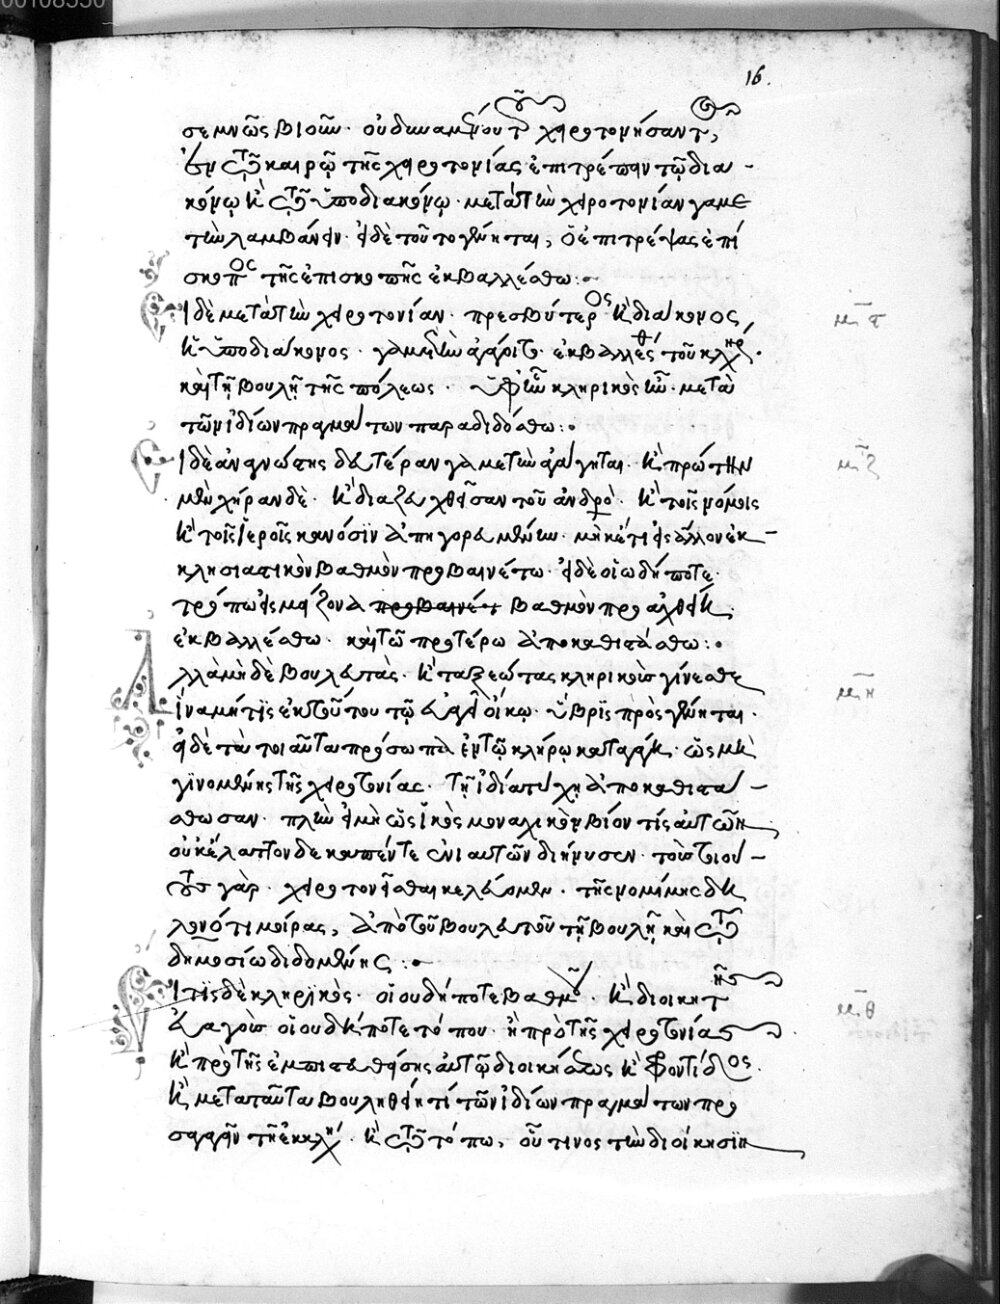 16.
σεμνῶς βιοῦν. οὐ δυναμένου τοῦ χειροτονήσαντος,
ἐν τῷ καιρῷ τῆς χειροτονίας ἐπιτρέπειν τῷ δια-
κόνῳ κ̀ τῷ ὑποδιακόνῳ. μετὰ τὴν χειροτονίαν γαμε
τὴν λαμβάνειν. εἰ δὲ τοῦτο γένηται, ὁ ἐπιτρέψας ἐπί
σκοπος τῆς ἐπισκοπῆς ἐκβαλλέσθω:~
Εἰ δὲ μετὰ τὴν χειροτονίαν. πρεσβύτερος κ̀ διάκονος,
κ̀ ὑποδιάκονος. γαμετὴν ἀγάγοιτο. ἐκβαλλέσθω τοῦ κλήρου.
καὶ τῇ βουλῇ τῆς πόλεως. κληρικὸς ἦν. μετὰ
τῶν ἰδίων πραγμάτων παραδιδόσθω:.
μ ζ
Εἰ δὲ ἀναγνώστης δευτέραν γαμετὴν ἀγάγηται. κ̀ πρώτην
μὲν χήραν δὲ. κ̀ διαζευχθεῖσαν τοῦ ἀνδρὸς. κ̀ τοῖς νόμοις
κ̀ τοῖς ἱεροῖς κανόσϊν ἀπηγορευμένην. μηκέτι εἰς ἄλλον ἐκ-
κλησιαστικὸν βαθμὸν προβαινέτω. εἰ δὲ οἱῳδήποτε
τρόπῳ εἰς μείζονα προβαινέτω βαθμὸν προαχθείη,
ἐκβαλλέσθω. καὶ τῷ προτέρῳ ἀποκαθιστάσθω:.
μ η
Ἀλλὰ μὴ δὲ βουλευτὰς. κ̀ ταξεώτας κληρικοὺς γίνεσθαι
ἵνα μή τϊς ἐκ τούτου τῷ εὐαγεῖ οἴκῳ. ὕβρϊς προσγένηται.
εἰ δὲ τὰ τοιαῦτα πρόσωπα ἐν τῷ κλήρῳ καταγείη. ὡς μὴ
γϊνομένης τῆς χειροτονίας. τῇ ἰδίᾳ τύχῃ ἀποκαθιστά-
σθωσαν. πλὴν εἰ μὴ ὡς εἰκὸς μοναχικὸν βίον τίς αὐτῶν
οὐκ ἔλαττον δεκαπέντε ἐνιαυτῶν διήνυσεν. τοὺς τοιού-
τους γὰρ. χειροτονεῖσθαι κελεύομεν. τῆς νομίμης δη
λονότι μοίρας, ἀπὸ τοῦ βουλευτοῦ τῇ βουλῇ καὶ τῷ
δημοσίῳ διδομένης:.
μ θ
Εἴ τϊς δὲ κληρϊκὸς. οἱουδήποτε βαθμοῦ. κ̀ διοικητὴς
εὐαγοῦς οἱουδήποτε τόπου. ἢ πρὸ τῆς χειροτονίας
κ̀ πρὸ τῆς ἐμπιστευθείσης αὐτῷ διοικήσεως κ̀ φροντίδος.
κ̀ μετὰ ταῦτα βουληθείη τί τῶν ἰδίων πραγμάτων προ
σαγαγεῖν τῇ ἐκκλησίᾳ. κ̀ τῷ τόπῳ, οὗ τινος τὴν διοίκησϊν